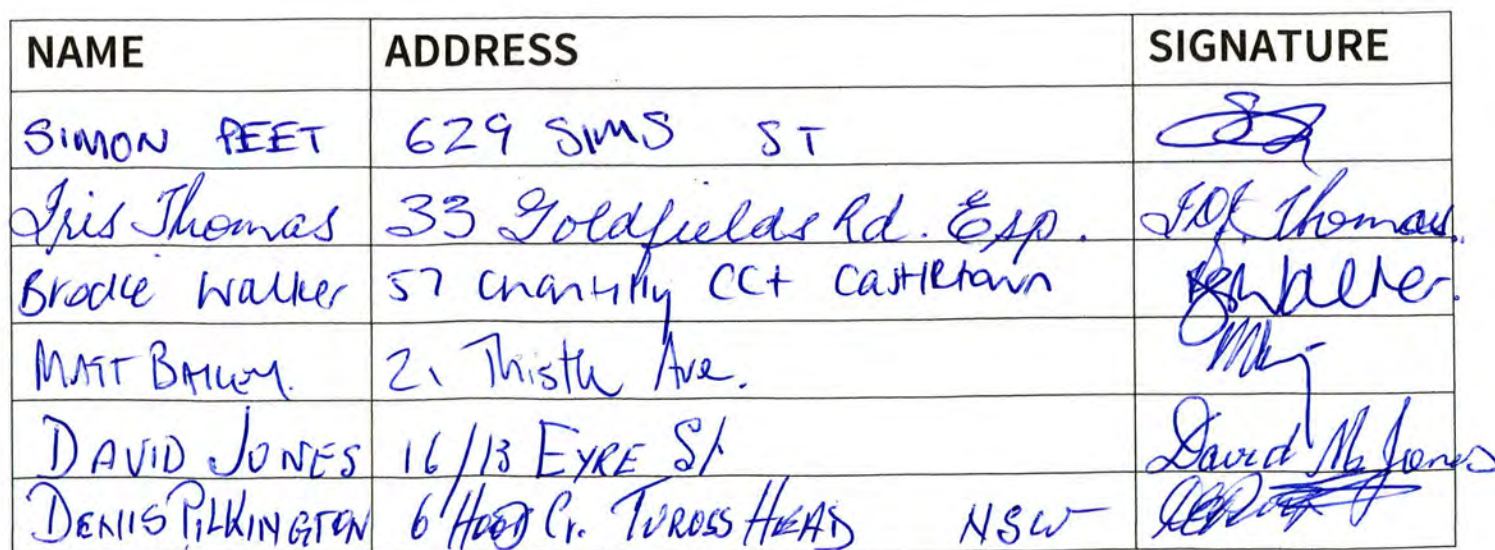 NAME ADDRESS SIGNATURE
SIMON PEET 629 SIMS ST
Iris Thomas 33 Goldfields Rd. Esp. Thomas.
Brodie Walker 57 Chantilly CCt Castletown Walker.
MATT BAILEY. 21 Thistle Ave.
DAVID JONES 16/13 EYRE St David M Jones
DENIS PILKINGTON 6 Cr. TUROSS HEAD NSW